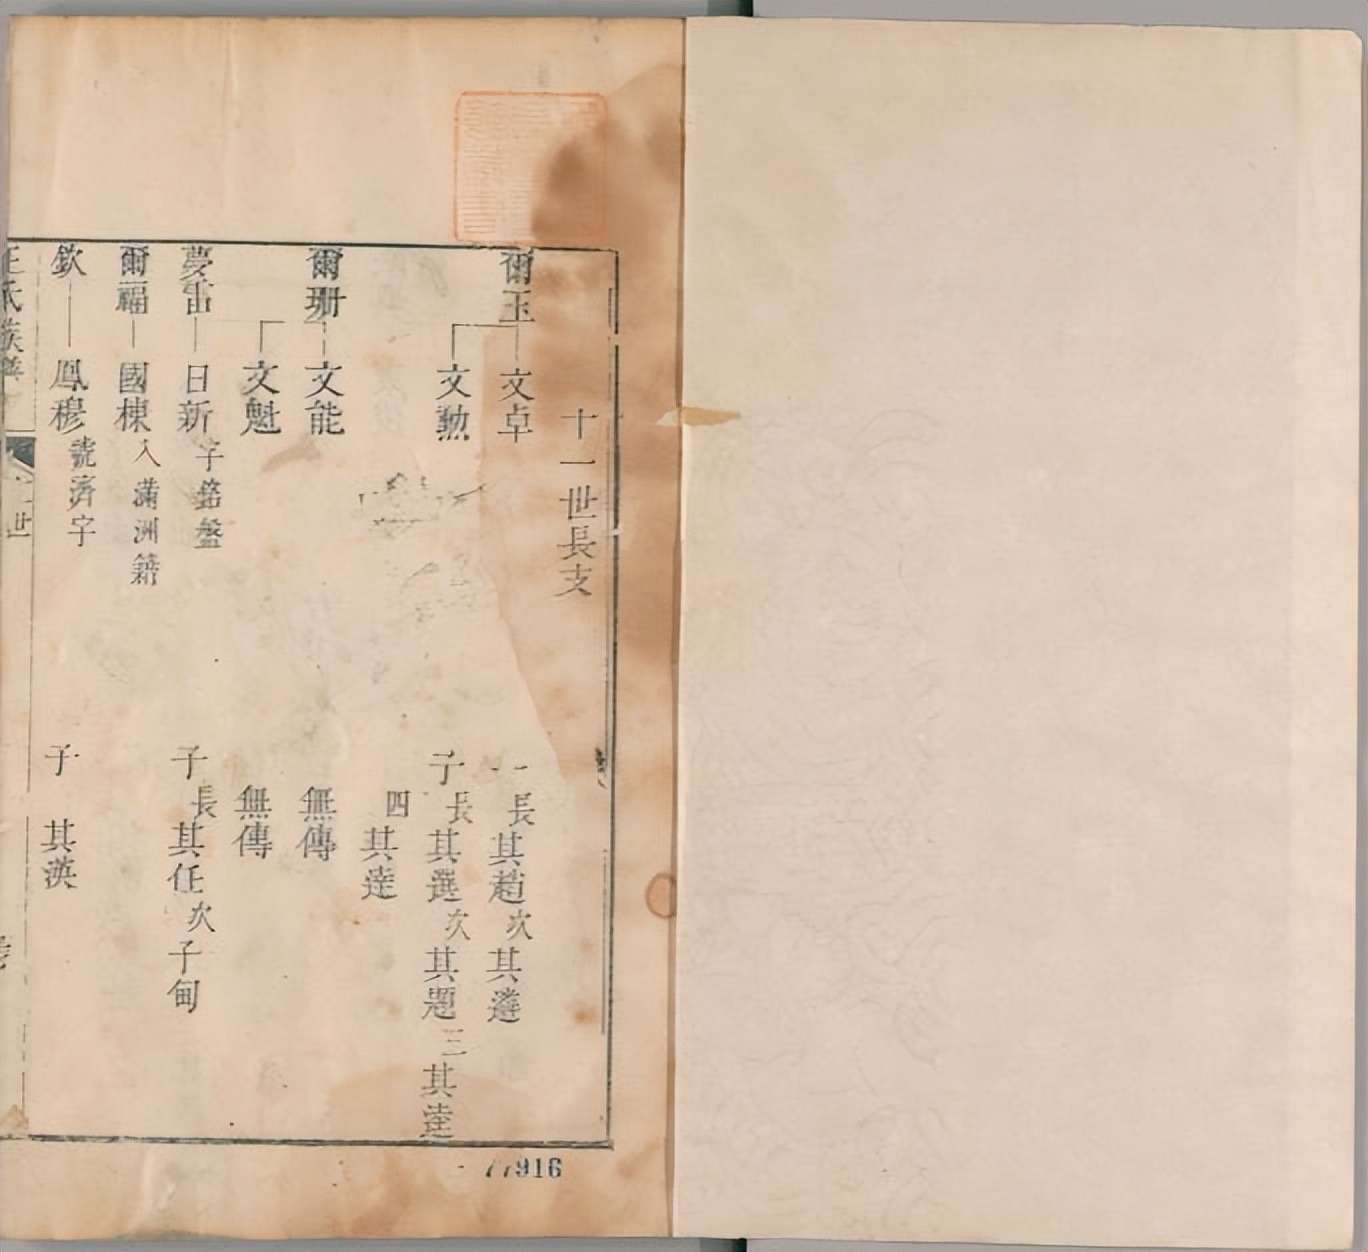 十一世長支
爾玉 文卓 子 長其趙 次其選
文勲 子 長其選 次其題 三其達
四其達
爾珊 文能 無傳
文魁 無傳
夢雷 日新 字銘盤 子 長其任 次子甸
爾福 國棟 入滿洲籍
欽 鳳穆 號濟宇 子 其漢
氏族譜
世
77916